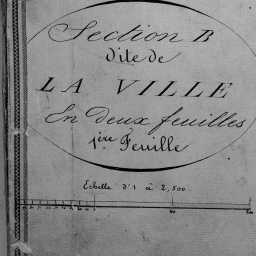 Section B
dite de
LA VILLE
En deux feuilles
1ère Feuille
Echelle d'1 à 2,500.